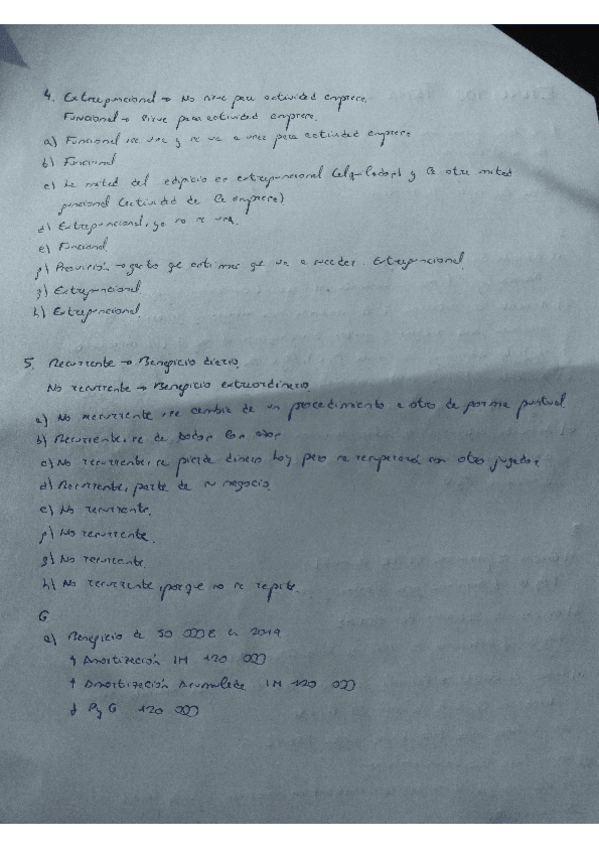 4. Extrafuncional → No sirve para actividad empresa.
Funcional → sirve para actividad empresa.
a) Funcional se usa y se va a usar para actividad empresa
b) Funcional
c) La mitad del edificio es extrafuncional (alquilados) y la otra mitad
funcional (actividad de la empresa)
d) Extrafuncional, ya no se usa.
e) Funcional
f) Provisión → gasto q estimas q va a suceder. Extrafuncional
g) Extrafuncional
h) Extrafuncional.
5. Recurrente → Beneficio diario.
No recurrente → Beneficio extraordinario
a) No recurrente, se cambia de un procedimiento a otro de forma puntual.
b) Recurrente, se da todos los años
c) No recurrente, se pierde dinero hoy pero se recuperará con otros jugadores
d) Recurrente, parte de su negocio.
e) No recurrente.
f) No recurrente.
g) No recurrente.
h) No recurrente, porque no se repite.
6
a) Beneficio de 50 000€ en 2019
↑ Amortización IM 120 000
↑ Amortización Acumulada IM 120 000
↓ PyG 120 000